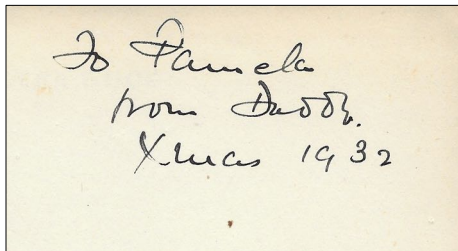 To Pamela
from Daddy.
Xmas 1932